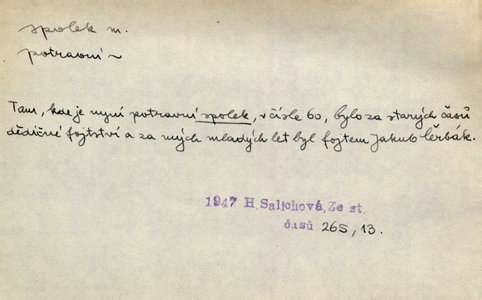 spolek m.
potravní ~
Tam, kde je nyní potravní spolek, v čísle 60, bylo za starých časů
dědičné fojtství a za mých mladých let byl fojtem Jakub Čerbák.
1947 H. Salichová, Ze st.
časů 265, 13.